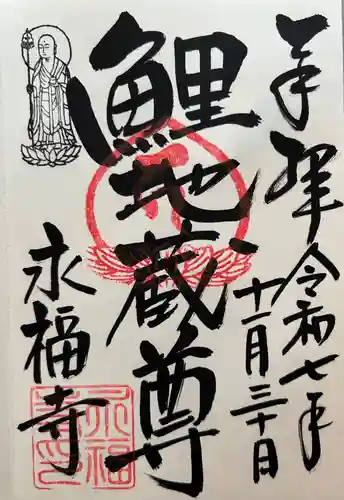 奉拝
令和七年
十一月三十日
鯉地蔵尊
永福寺
永福寺印